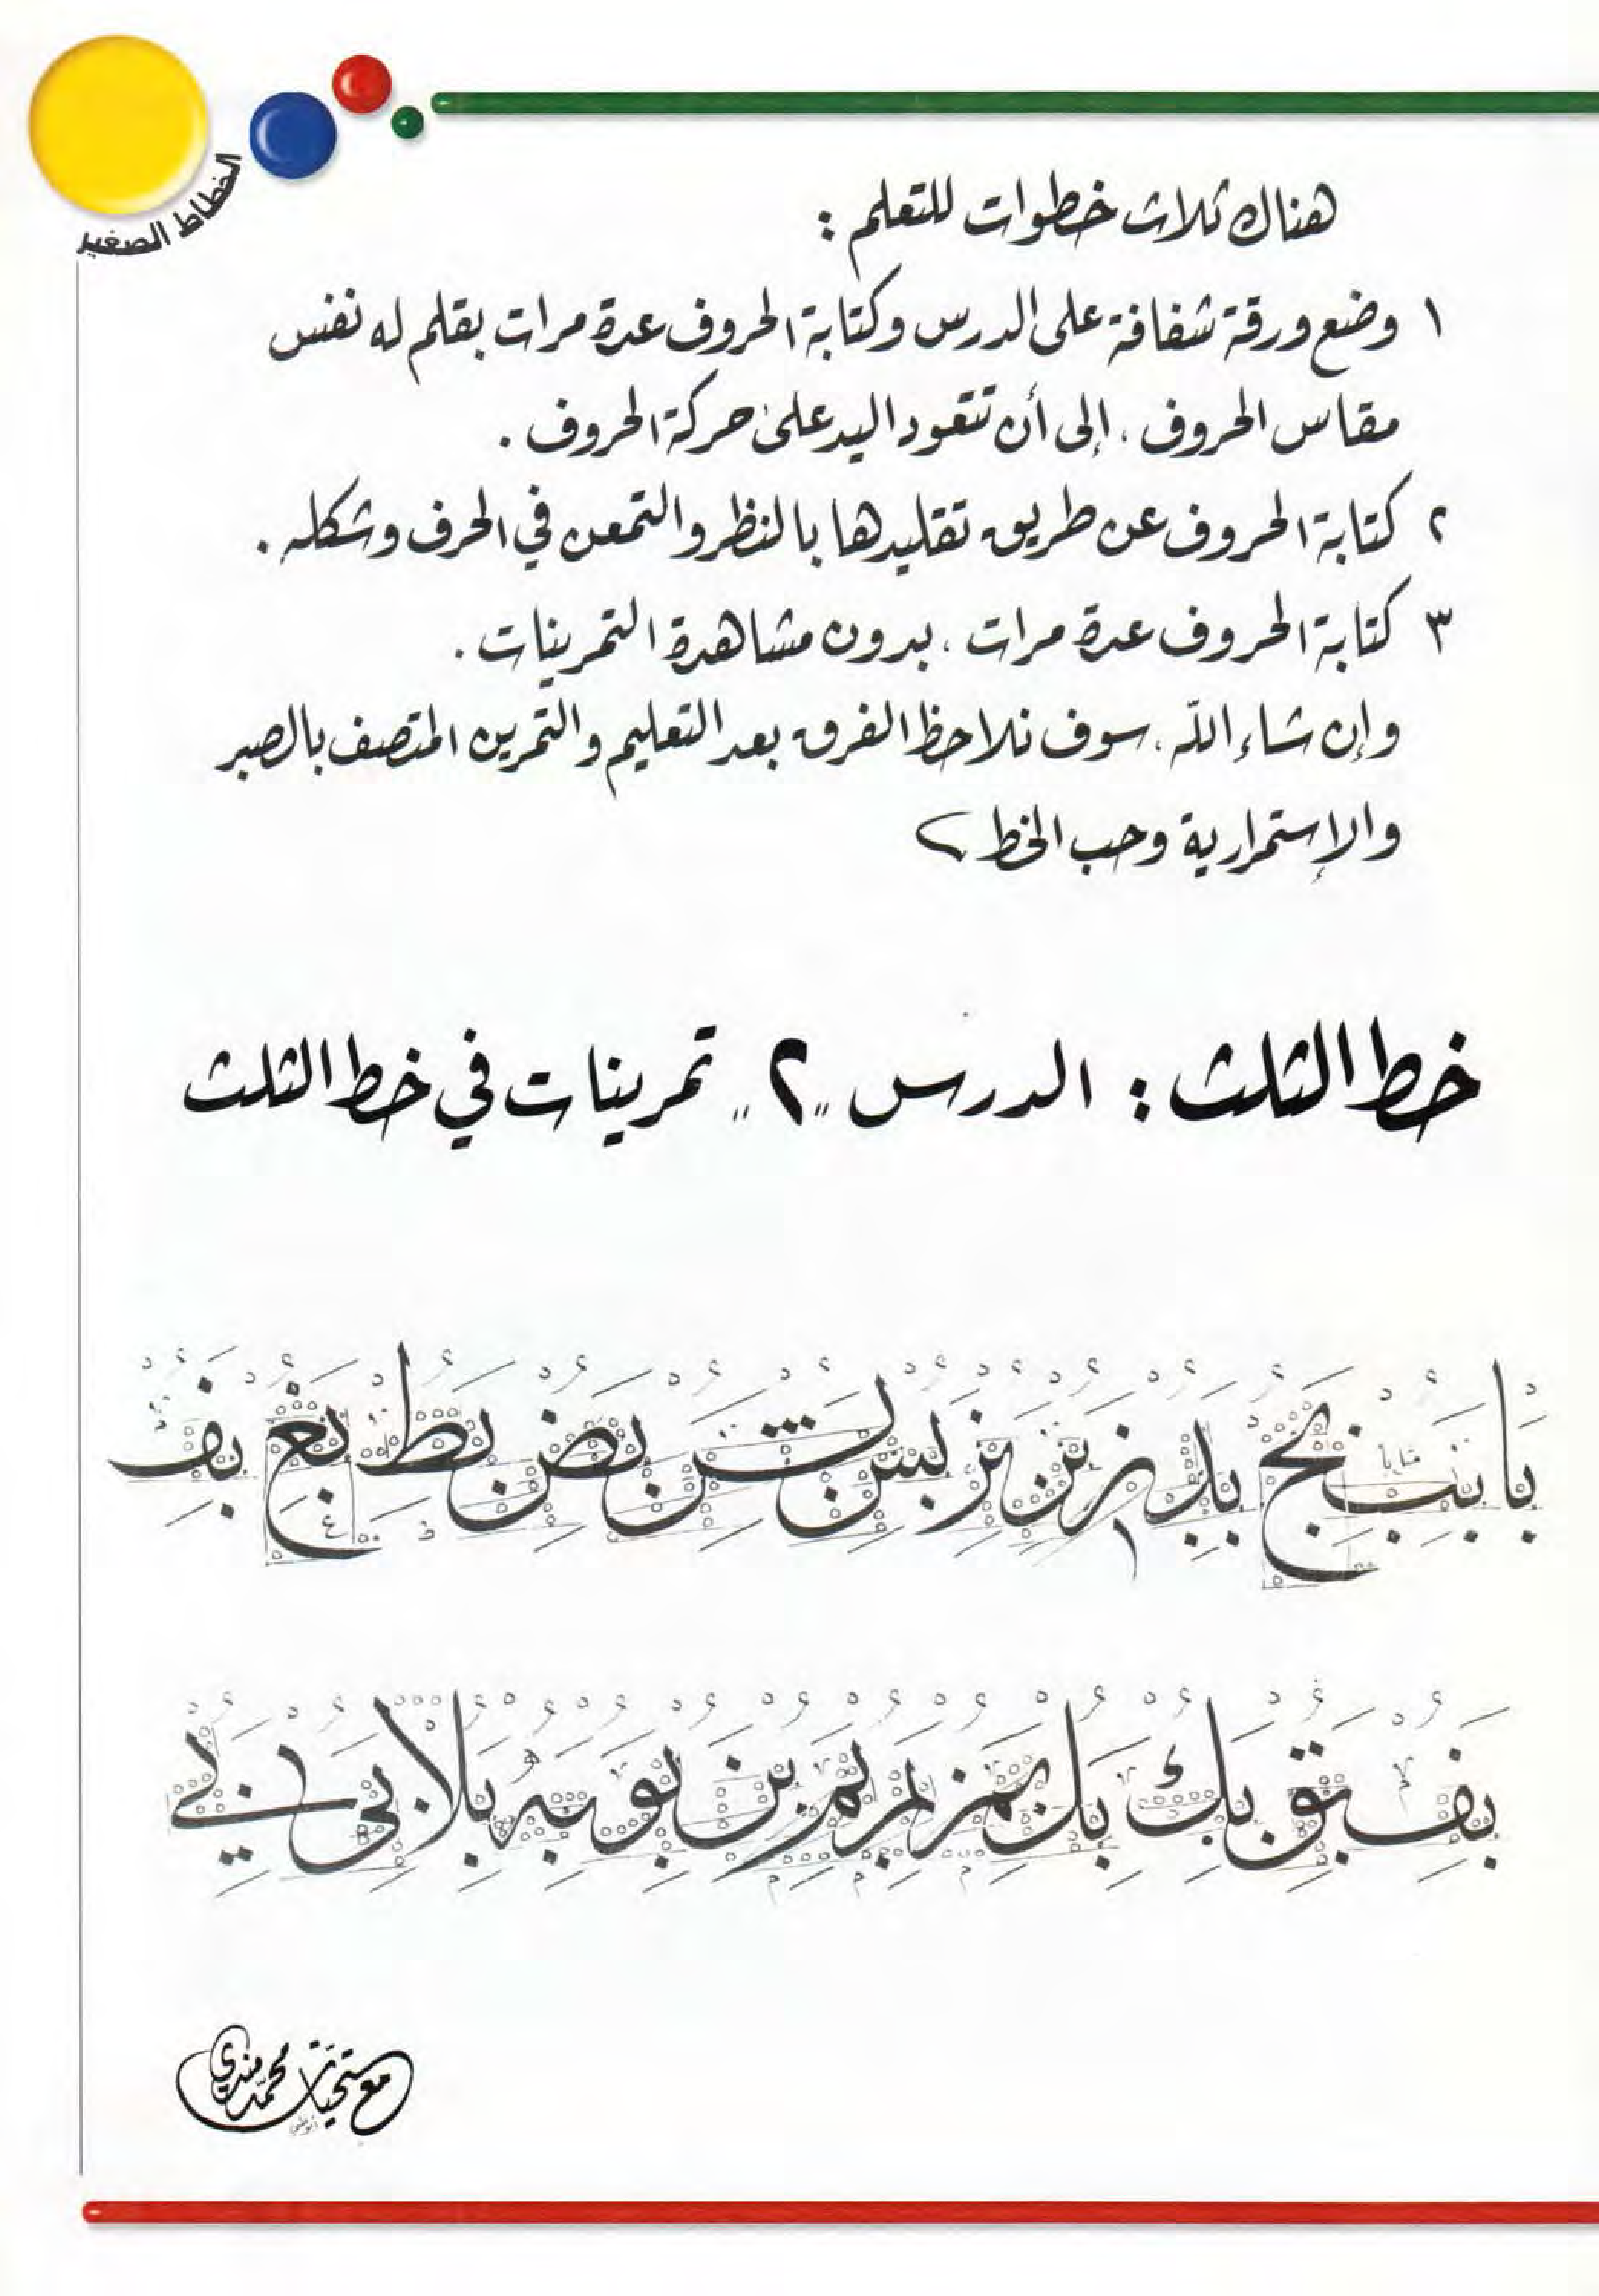 الخطاط الصغير
هناك ثلاث خطوات للتعلم :
١ وضع ورقة شفافة على الدرس وكتابة الحروف عدة مرات بقلم له نفس
مقاس الحروف ، إلى أن تتعود اليد على حركة الحروف .
٢ كتابة الحروف عن طريق تقليدها بالنظر والتمعن في الحرف وشكله .
٣ كتابة الحروف عدة مرات ، بدون مشاهدة التمرينات .
وإن شاء الله ، سوف نلاحظ الفرق بعد التعليم والتمرين المتصف بالصبر
والإستمرارية وحب الخط
خط الثلث : الدرس "٢" تمرينات في خط الثلث
با ببب بج بد بر بز بس بش بص بض بط بع بف
بف بق بك بك بل بم بم بم بن بو به بلا بى بي
مع تحيات محمد مندي
أبوظبي